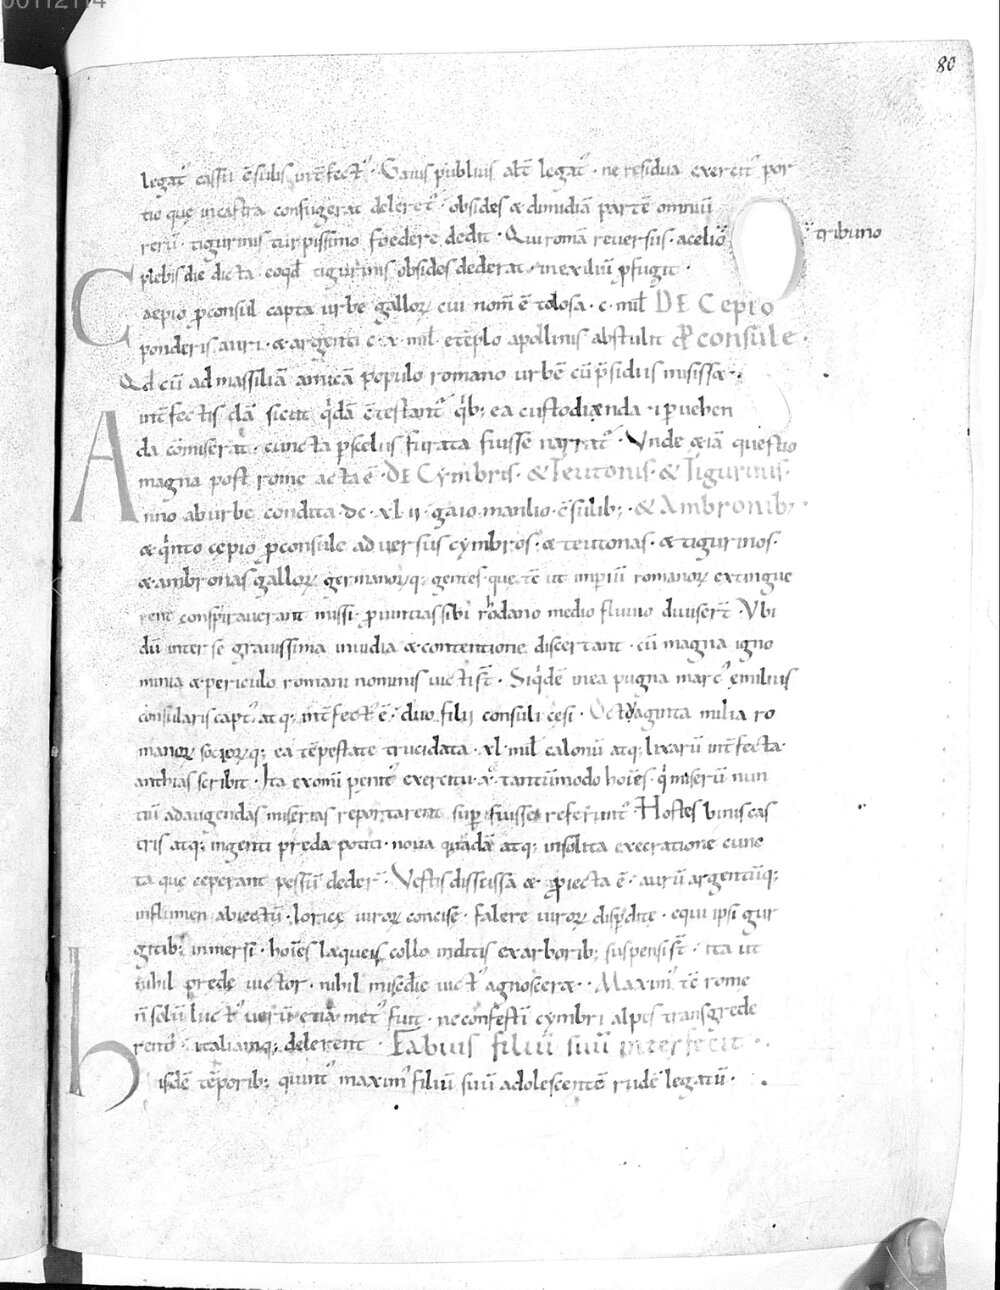 00112114
80
legat᷒ cassii c̄sulis int̄fect᷒ · Gaius publius alt̄ legat᷒ · ne residua exercit᷒ por
tio que incastra confugerat deleret᷒ · obsides & dimidiā partē omniū
rerū · tigurinis turpissimo foedere dedit · Qui romā reversus · acelio tribuno
plebis die dicta eo qđ tigurinis obsides dederat · inexiliū ꝓfugit ·
Caepio ꝓconsul capta urbe galloꝝ cui nom̄ ē tolosa · c · mil̄ DE Cepio
ponderis auri · & argenti c · x · mil̄ etēplo apollinis abstulit ꝓconsule ·
Qđ cū ad massiliā amicā populo romano urbē cū p̄sidiis misiss& ·
int̄fectis clā sicut q̇dā c̄testant᷒ q̇b; ea custodiaenda · ꝑueben
da cōmiserat · cuncta ꝑscelus furata fuisse narrat᷒ · Vnde &iā questio
magna post rome acta ē · DE Cymbris · & Teutonis · & Tigurinis ·
Anno aburbe condita · dc · xl · ii · gaio manlio · c̄sulib; · & Ambronib; ·
& q̇nto cepio ꝓconsule adversus cymbros · & teutonas · & tigurinos ·
& ambronas galloꝝ germanoꝝq; gentes · que tē ut inperiū romanoꝝ extingue
rent conspiraverant missi · ꝓvincias sibi rhodano medio fluvio diviser̄t · Vbi
dū inter se gravissima invidia & contentione discertant · cū magna igno
minia & periculo romani nominis victi s̄t · Siq̇dē inea pugna marc᷒ emilius
consularis capt᷒ atq; int̄fect᷒ ē · duo filii consuli cesi · Octoaginta milia ro
manoꝝ socioꝝq; ea tēpestate trucidata · xl · mil̄ calonū atq; lixarū int̄fecta
anthias scribit · Ita ex om̄i penit᷒ exercitu · x · tantūmodo hoīes · q̇ miserū nun
tiū ad augendas miserias reportarent suꝑfuisse referunt᷒ · Hostes binis cas
tris atq; ingenti preda potiti · nova quadā atq; insolita execratione cunc
ta que ceperant pessū deder̄ · Vestis discissa & ꝓiecta ē · aurū argentūq;
influmen abiectū · lorice viroꝝ concise · falere viroꝝ disꝑdite · equi ipsi gur
gitib; inmersi · hoīes laqueis collo inditis exarborib; suspensi s̄t · ita ut
nihil prede victor · nihil misēdie vict᷒ agnoscer& · Maxim᷒ tē rome
n̄ solū luct᷒ verū etiā met᷒ fuit · ne confestī cymbri alpes transgrede
rent᷒ · italiamq; delerent · Fabius filiū suū interfecit ·
hisdē tēporib; quint᷒ maxim᷒ filiū suū adolescentē rudē legatū ·